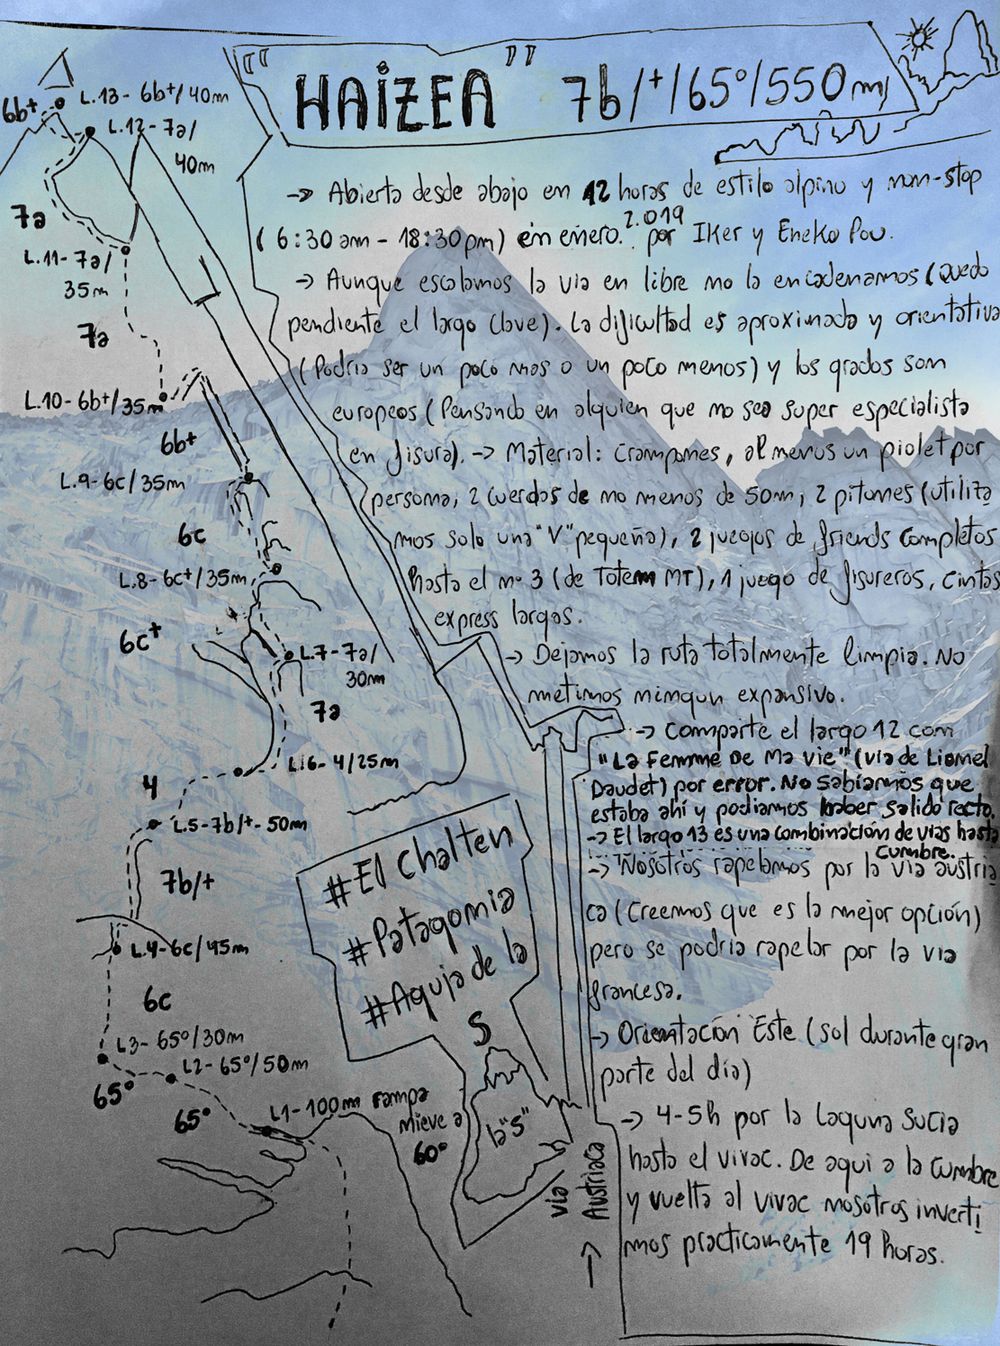 "HAIZEA" 7b/+/65°/550m
6b+
L.13 - 6b+/40m
L.12 - 7a/
40m
7a
L.11 - 7a/
35m
7a
L.10 - 6b+/35m
6b+
L.9 - 6c/35m
6c
L.8 - 6c+/35m
6c+
L.7 - 7a/
30m
7a
L.6 - 4/25m
4
L.5 - 7b/+ - 50m
7b/+
L.4 - 6c/45m
6c
L3 - 65º/30m
65º
L2 - 65º/50m
65º
L1 - 100m rampa
nieve a
60º
-> Abierta desde abajo en 12 horas de estilo alpino y non-stop
(6:30 am - 18:30 pm) en enero. 2.019 por Iker y Eneko Pou.
-> Aunque escalamos la via en libre no la encadenamos (quedo
pendiente el largo clave). La dificultad es aproximada y orientativa
(Podria ser un poco mas o un poco menos) y los grados son
europeos (Pensando en alguien que no sea super especialista
en fisura). -> Material: Crampones, al menos un piolet por
persona, 2 cuerdas de no menos de 50m, 2 pitones (utiliza
mos solo una "V" pequeña), 2 juegos de friends completos
hasta el nº 3 (de Totem MT), 1 juego de fisureros, cintas
express largas.
-> Dejamos la ruta totalmente limpia. No
metimos ningun expansivo.
-> Comparte el largo 12 con
"La Femme De Ma Vie" (via de Lionel
Daudet) por error. No sabiamos que
estaba ahi y podiamos haber salido recto.
-> El largo 13 es una combinación de vias hasta
cumbre.
-> Nosotros rapelamos por la via austria
ca (Creemos que es la mejor opción)
pero se podria rapelar por la via
francesa.
-> Orientación Este (sol durante gran
parte del día)
-> 4-5h por la Laguna Sucia
hasta el vivac. De aqui a la cumbre
y vuelta al vivac nosotros inverti
mos practicamente 19 horas.
#El Chalten
#Patagonia
#Aguja de la
S
la "S"
via
Austriaca